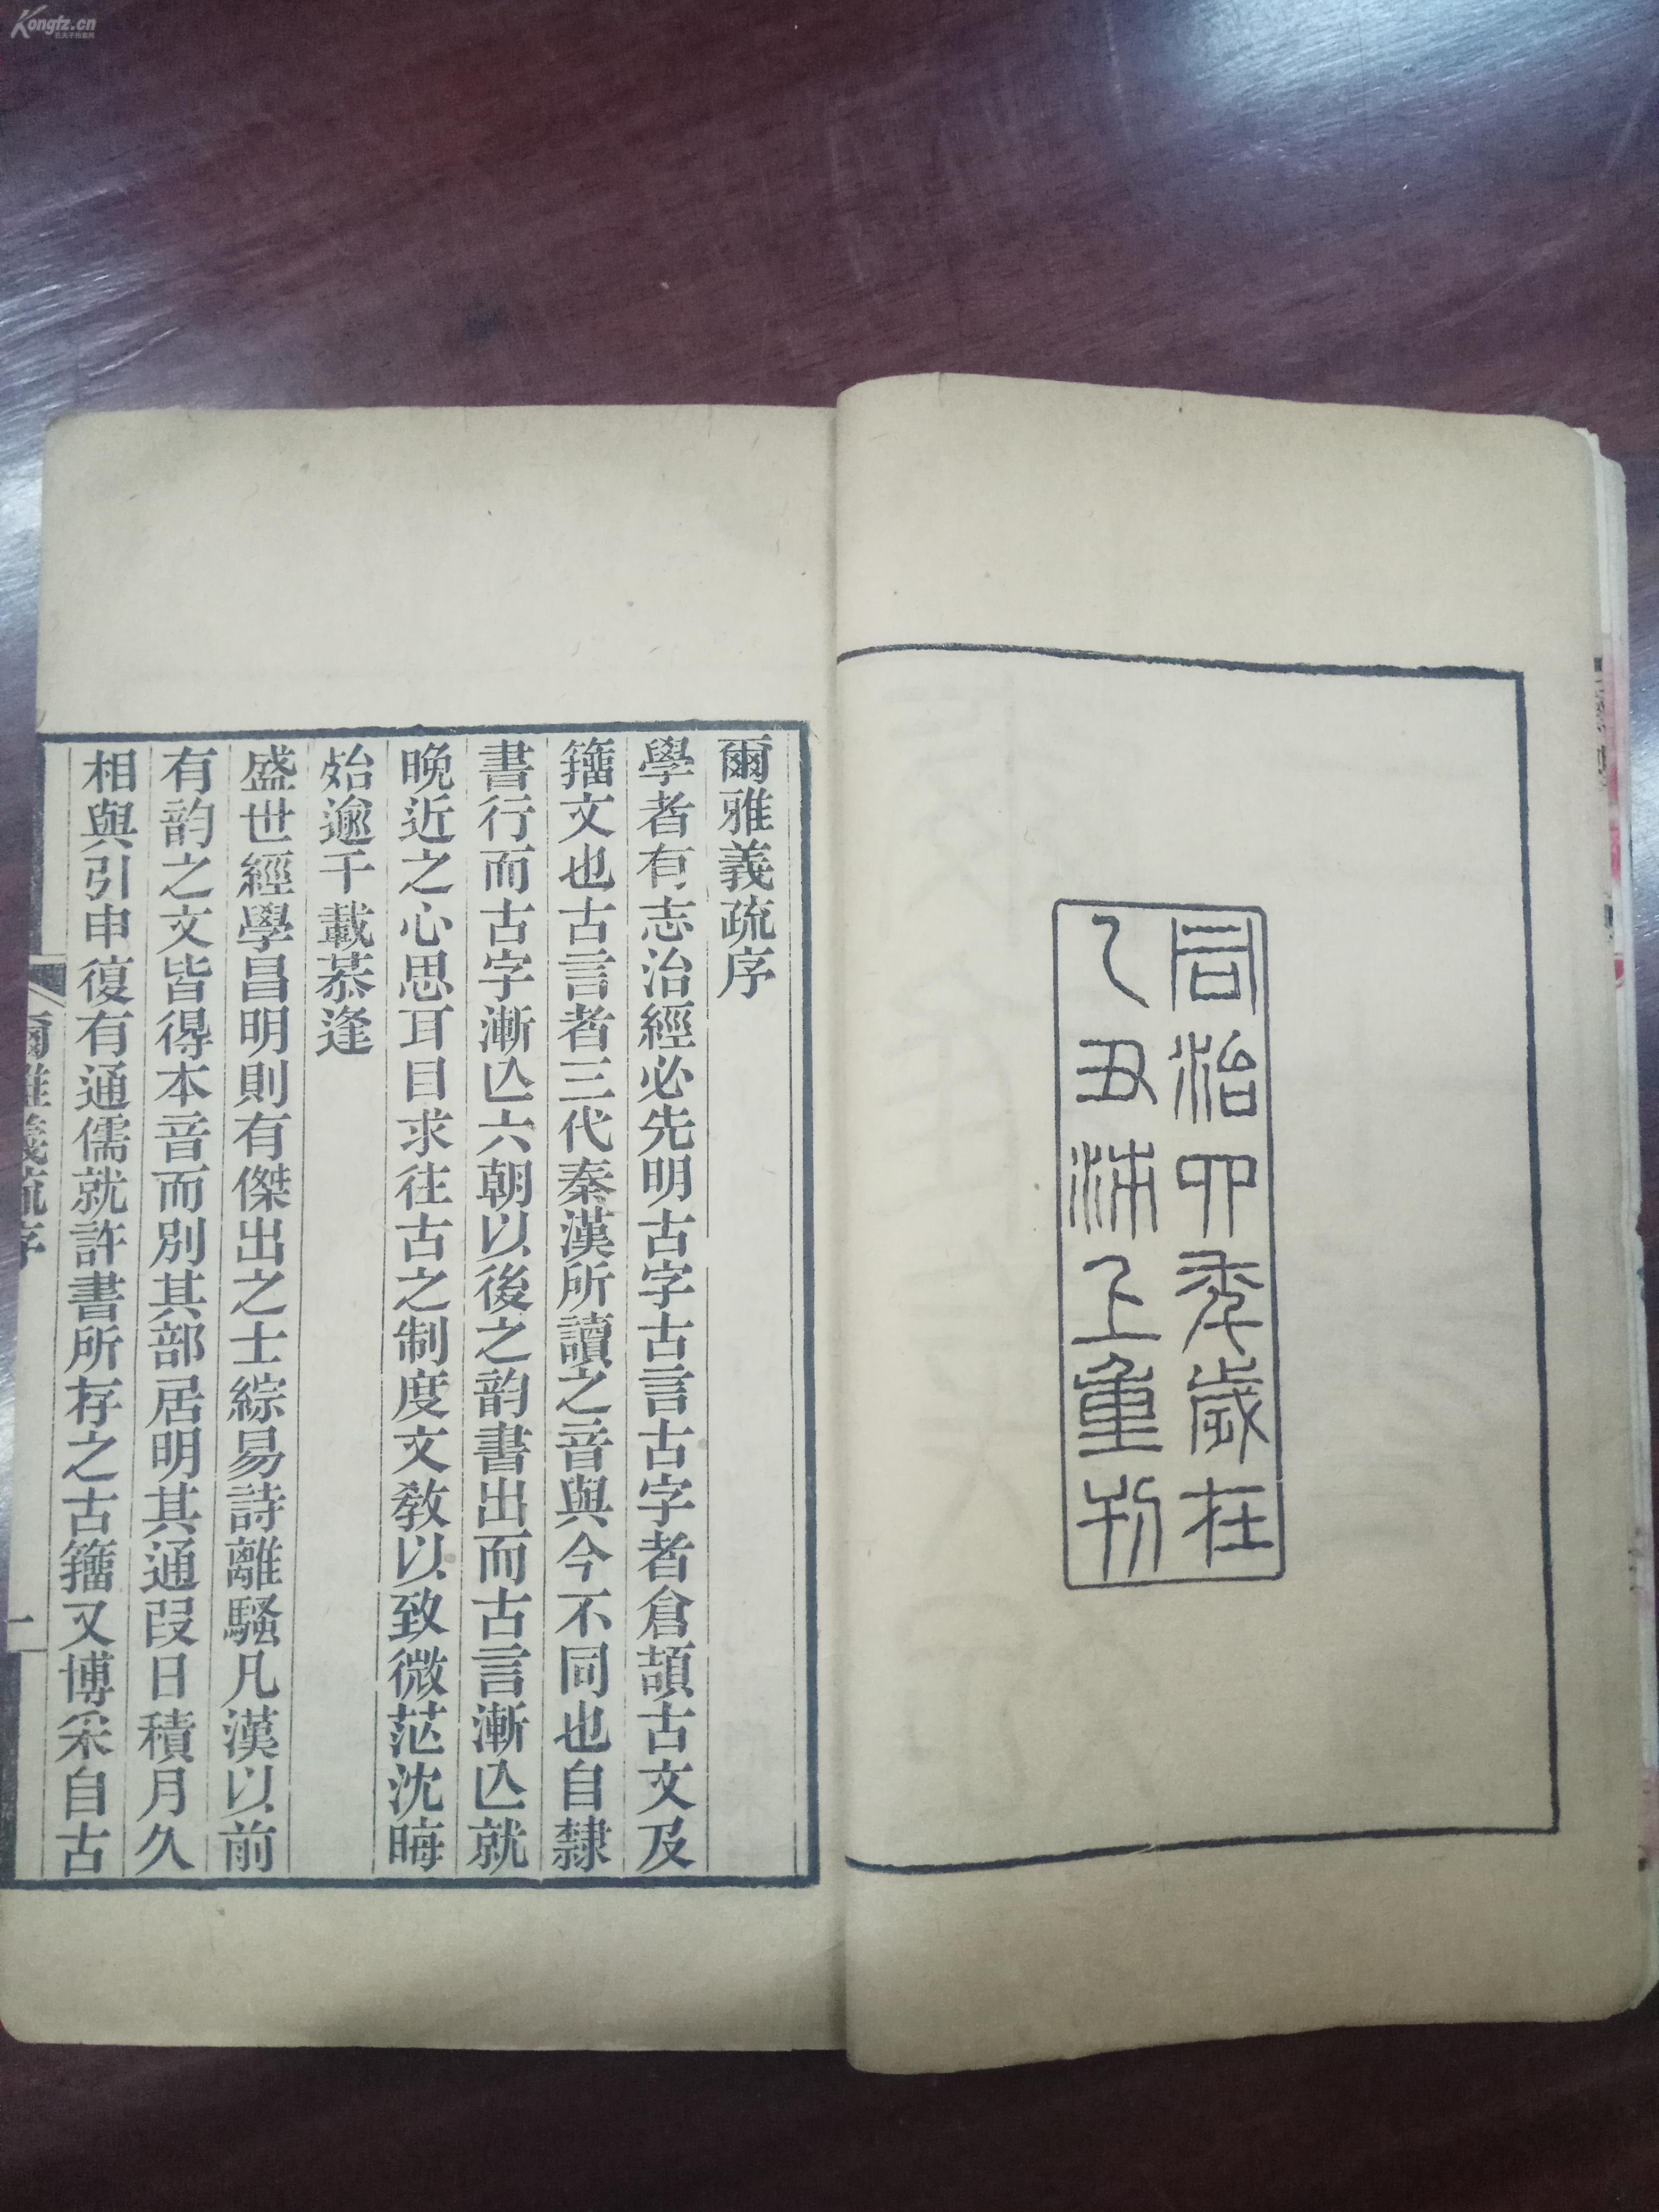 Kongfz.cn
孔夫子拍卖网
同治四季歲在
乙丑沛上重刊
爾雅義疏序
學者有志治經必先明古字古言古字者倉頡古文及
籒文也古言者三代秦漢所讀之音與今不同也自隸
書行而古字漸亾六朝以後之韵書出而古言漸亾就
晚近之心思耳目求往古之制度文敎以致微茫沈晦
殆逾千載恭逢
盛世經學昌明則有傑出之士綜易詩離騷凡漢以前
有韵之文皆得本音而別其部居明其通叚日積月久
相與引申復有通儒就許書所存之古籒又博采自古
爾雅義疏序
一